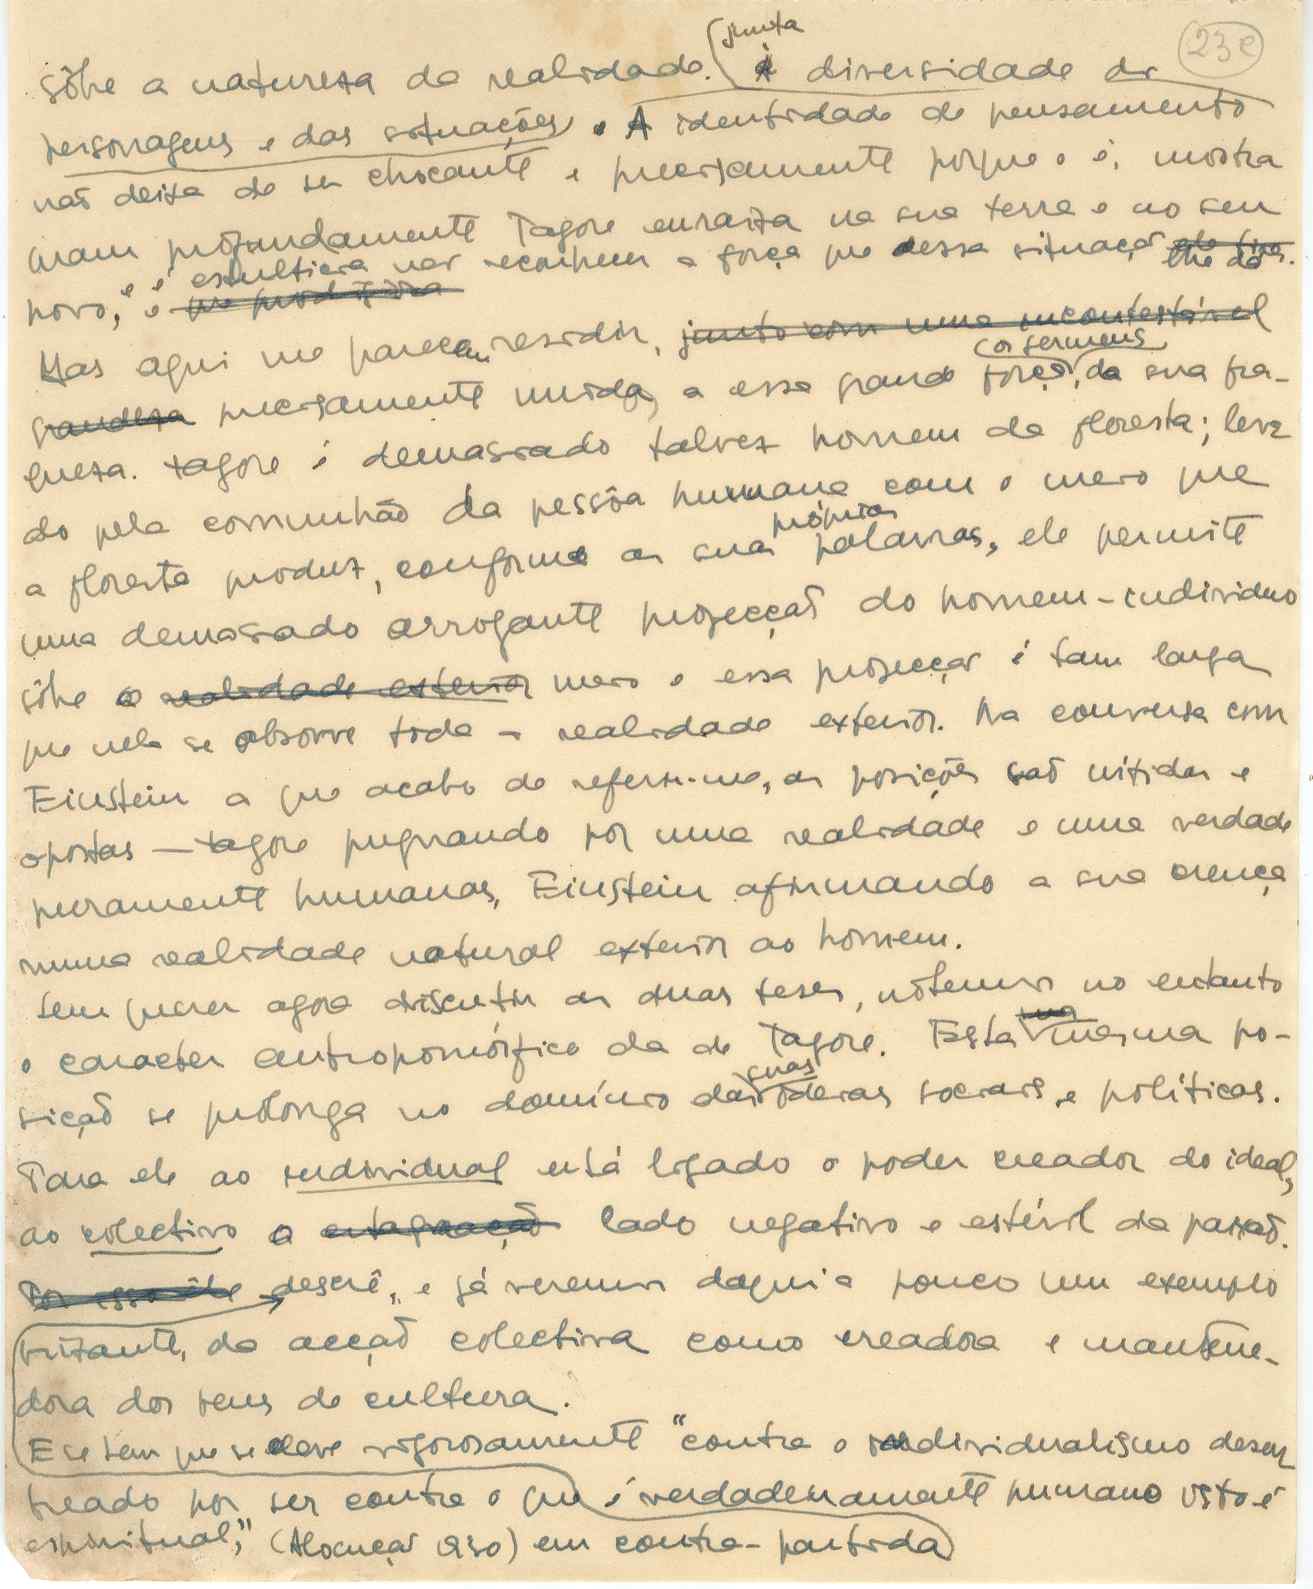 junta
23e
sôbre a natureza da realidade. à diversidade de
personagens e das situações. A identidade de pensamento
não deixa de ser chocante e precisamente porque o é, mostra
quam profundamente Tagore enraiza na sua terra e no seu
estultícia
povo, e é não reconhecer a força que dessa situação lhe dá.
Mas aqui me parece residir, junto com uma incontestável
os germens
grandeza precisamente unida, a essa grande força, da sua fra-
queza. Tagore é demasiado talvez homem da floresta; leva
do pela comunhão da pessôa humana com o meio que
próprias
a floresta produz, conforme as suas palavras, ele permite
uma demasiado arrogante projecção do homem-individuo
sôbre o realidade exterior meio e essa projecção é tam larga
que nela se absorve toda a realidade exterior. Na conversa com
Einstein a que acabo de referir-me, as posições são nítidas e
opostas — Tagore pugnando por uma realidade e uma verdade
puramente humanas, Einstein afirmando a sua crença
numa realidade natural exterior ao homem.
Sem querer agora discutir as duas teses, notemos no entanto
o caracter antropomórfico da de Tagore. Esta mesma po-
suas
sição se prolonga no domínio das ideias sociais e políticas.
Para ele ao individual está ligado o poder creador do ideal,
ao colectivo o estagnação lado negativo e estéril da paixão.
Por isso êle descrê, e já veremos daqui a pouco um exemplo
frizante, da acção colectiva como creadora e mantene-
dora dos bens de cultura.
E se bem que se eleve vigorosamente "contra o individualismo desen
freado por ser contra o que é verdadeiramente humano isto é
espiritual", (Alocução 930) em contra-partida